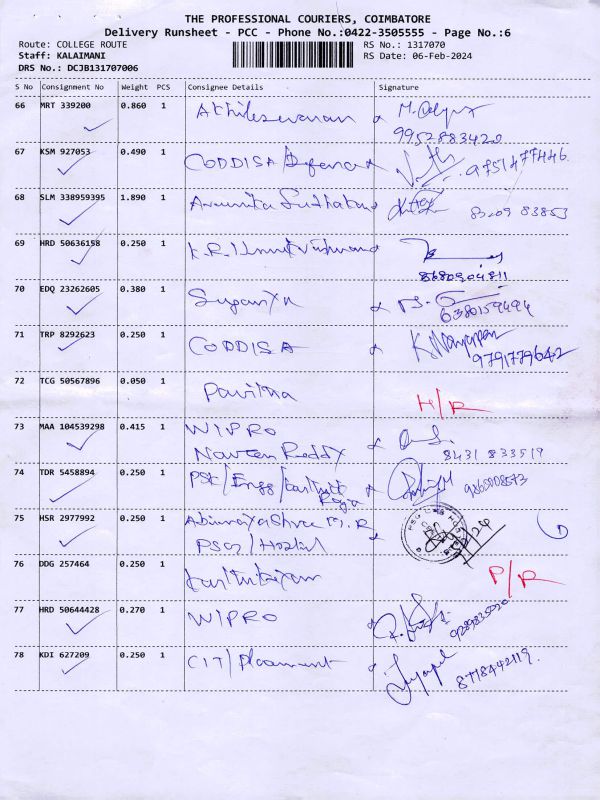 THE PROFESSIONAL COURIERS, COIMBATORE
Delivery Runsheet - PCC - Phone No.:0422-3505555 - Page No.:6
Route: COLLEGE ROUTE RS No.: 1317070
Staff: KALAIMANI RS Date: 06-Feb-2024
DRS No.: DCJB131707006
S No Consignment No Weight PCS Consignee Details Signature
66 MRT 339200 0.860 1
9952883420
67 KSM 927053 0.490 1 CODDISA/Defence 9751477446
68 SLM 338959395 1.890 1 83009 83853
69 HRD 50636158 0.250 1
8680904811
70 EDQ 23262605 0.380 1 Supanya
6380159494
71 TRP 8292623 0.250 1 CODDISA
9791779642
72 TCG 50567896 0.050 1 Pavithra H/R
73 MAA 104539298 0.415 1 WIPRO
Naveen Reddy 8431 833519
74 TDR 5458894 0.250 1 PSG/Engg/
75 HSR 2977992 0.250 1
PSG/Hostel
76 DDG 257464 0.250 1 P/R
77 HRD 50644428 0.270 1 WIPRO
78 KDI 627209 0.250 1 CIT/Placement
8778442119.